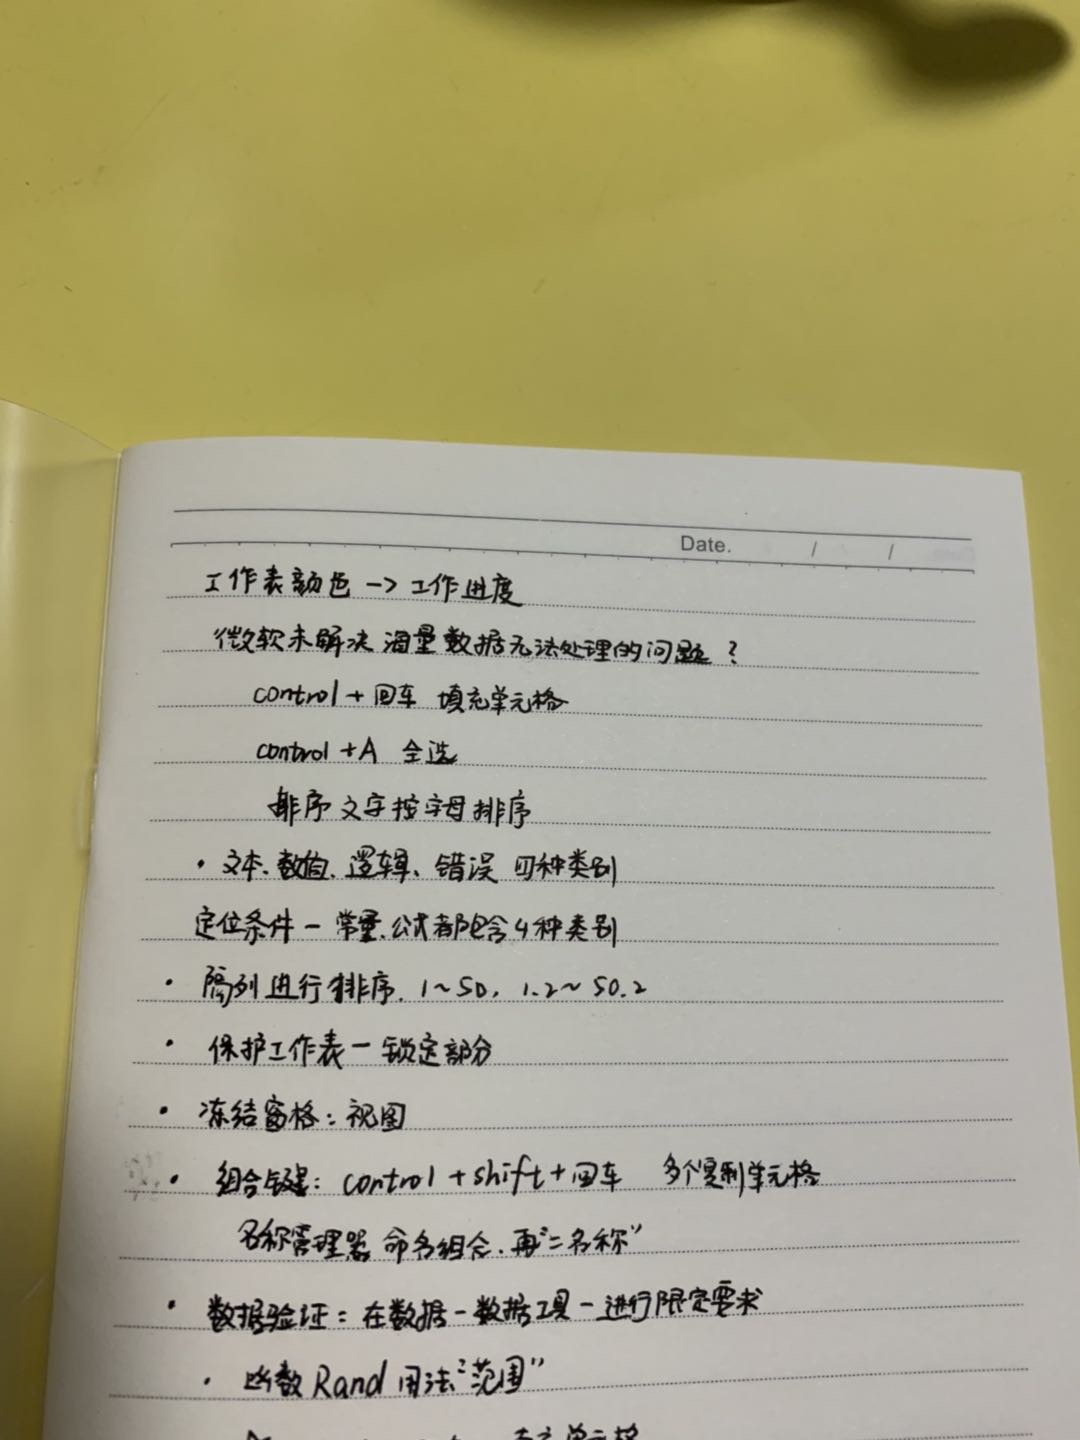 Date. / /
工作表颜色 -> 工作进度
微软未解决海量数据无法处理的问题？
control + 回车 填充单元格
control + A 全选
排序文字按字母排序
· 文本、数值、逻辑、错误 四种类别
定位条件 - 常量、公式都包含4种类别
· 隔列进行排序. 1~50, 1.2~50.2
· 保护工作表 - 锁定部分
· 冻结窗格：视图
· 组合键：control + shift + 回车 多个复制单元格
名称管理器 命名组合、再"=名称"
· 数据验证：在数据 - 数据工具 - 进行限定要求
· 函数 Rand 用法"范围"
单元格